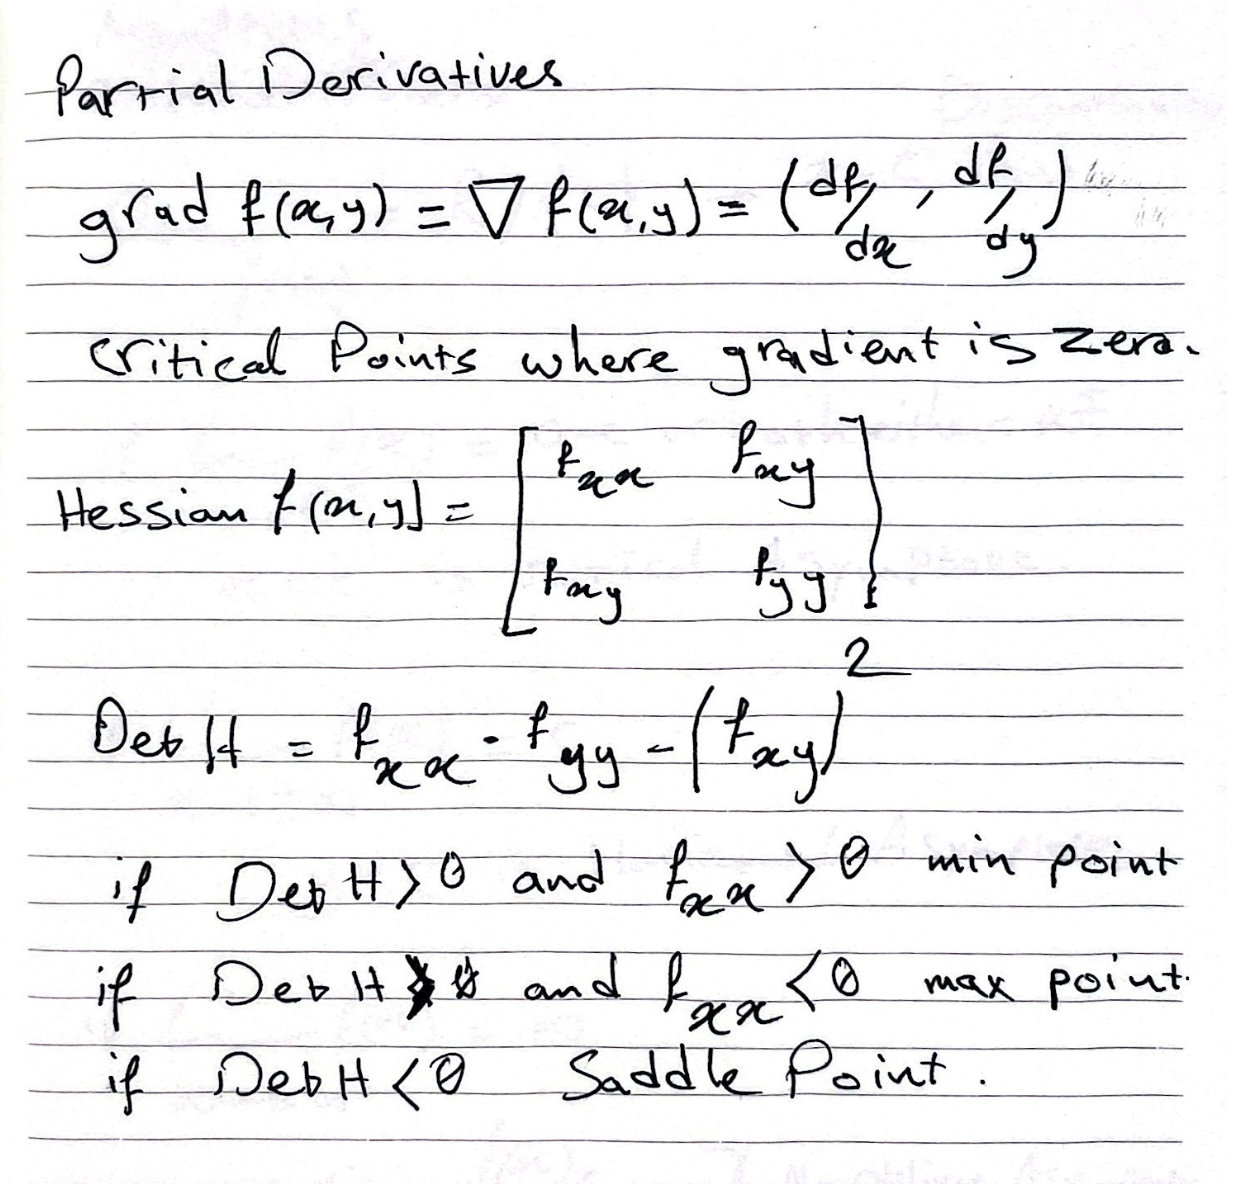 Partial Derivatives
grad f(x,y) = ∇ f(x,y) = (df/dx , df/dy)
Critical Points where gradient is zero.
Hessian f(x,y] = [fxx fxy
fxy fyy]
Det H = fxx . fyy - (fxy)²
if Det H > 0 and fxx > 0 min point
if Det H > 0 and fxx < 0 max point.
if Det H < 0 Saddle Point.